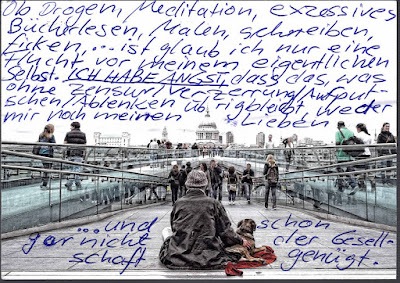 Ob Drogen, Meditation, exzessives
Bücherlesen, Malen, schreiben,
Ficken, ... ist glaub ich nur eine
Flucht vor meinem eigentlichen
Selbst. ICH HABE ANGST, dass das, was
ohne Zensur/Verzerrung/Aufput-
schen/Ablenken üb rigbleibt, weder
mir noch meinen "Lieben"
...und schon
gar nicht der Gesell-
schaft genügt.